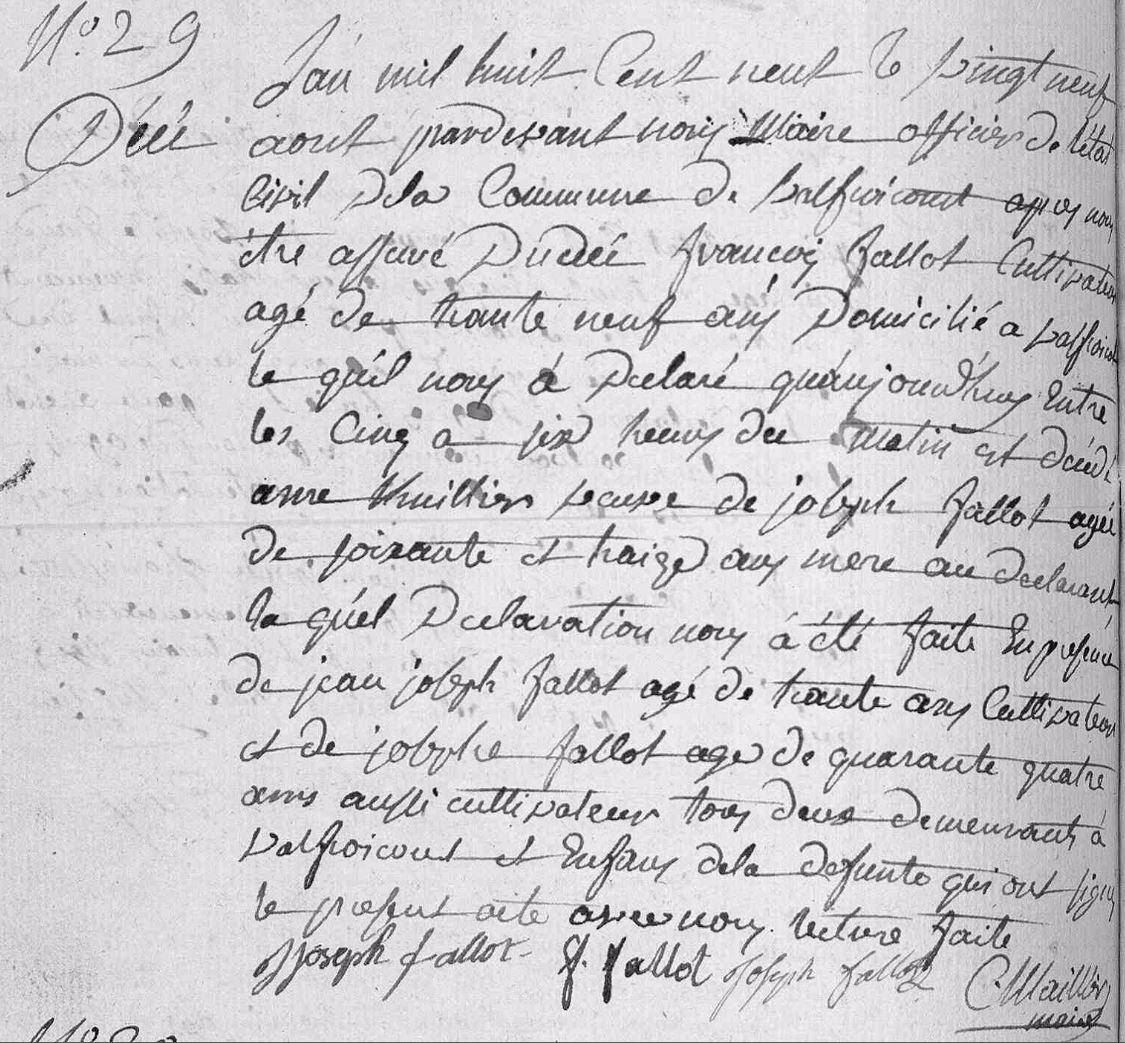 N.º 29
Décé
L'an mil huit Cent neuf le vingt neuf
aout pardevant nous Maire officier de l'état
Civil Dela Commune de Valfroicourt apres nous
être assuré Dudécé francois fallot Cultivateur
agé de trante neuf ans Domicilié a valfroicourt
le quel nous à Declaré qu'aujourd'huy Entre
les Cinq a six heures du matin est décédé
anne thuillier veuve de joseph fallot agée
de soixante et traize ans mere au declarant
la quel Declaration nous à été faite En presence
de jean joseph fallot agé de trante ans Cultivateur
et de josephe fallot age de quarante quatre
ans aussi cultivateur tous deux demeurants à
valfroicourt et Enfans dela defunte qui ont signé
le present acte avec nous lecture faite
JJoseph fallot F. fallot Joseph fallot
maire